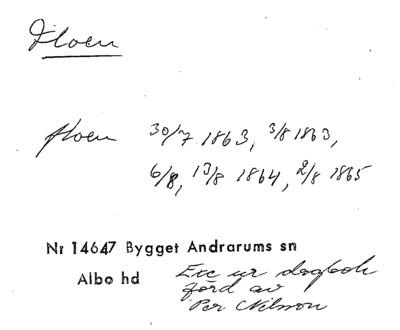 Floen
floen 30/7 1863, 3/8 1863,
6/8, 13/8 1864, 2/8 1865
Nr 14647 Bygget Andrarums sn
Albo hd
Exc ur dagbok
förd av
Per Nilsson